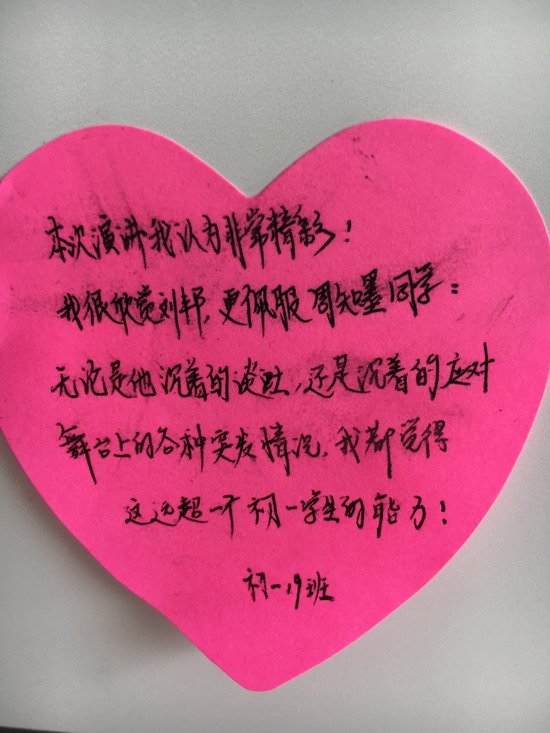 本次演讲我认为非常精彩！
我很欣赏刘邦，更佩服周知墨同学：
无论是他沉着的谈吐，还是沉着的应对
舞台上的各种突发情况，我都觉得
这远超一个初一学生的能力！
初一19班